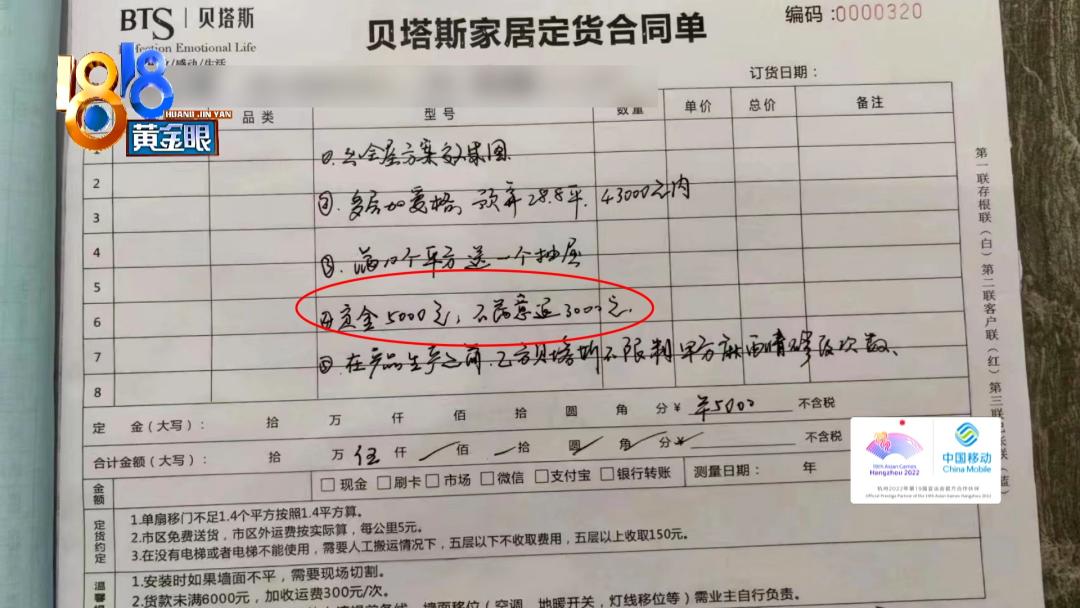 BTS 贝塔斯
erfection Emotional Life
/感动/生活
贝塔斯家居定货合同单
编码:0000320
1818
HUANG JIN YAN
黄金眼
订货日期：
品类 型号 数量 单价 总价 备注
1 ①.出全屋方案效果图
2
②.多层加爱格,预算28.8平.43000元内
3
4
③.满10个平方送一个抽屉
5
6 ④定金5000元,不满意退3000元.
7 ⑤.在产品生产之前.乙方贝塔斯不限制甲方 修改次数、
8
定 金(大写)： 拾 万 仟 佰 拾 圆 角 分¥ 5000 不含税
合计金额(大写)： 拾 万 伍 仟 佰 拾 圆 角 分¥ 不含税
金额 □现金 □刷卡 □市场 □微信 □支付宝 □银行转账 测量日期： 年
定货约定
1.单扇移门不足1.4个平方按照1.4平方算。
2.市区免费送货，市区外运费按实际算，每公里5元。
3.在没有电梯或者电梯不能使用，需要人工搬运情况下，五层以下不收取费用，五层以上收取150元。
温馨
1.安装时如果墙面不平，需要现场切割。
2.货款未满6000元，加收运费300元/次。
墙面移位（空调、地暖开关，灯线移位等）需业主自行负责。
第一联存根联（白）第二联客户联（红）第三联
19th Asian Games
Hangzhou 2022
中国移动
China Mobile
杭州2022年第19届亚运会官方合作伙伴
Official Prestige Partner of the 19th Asian Games Hangzhou 2022